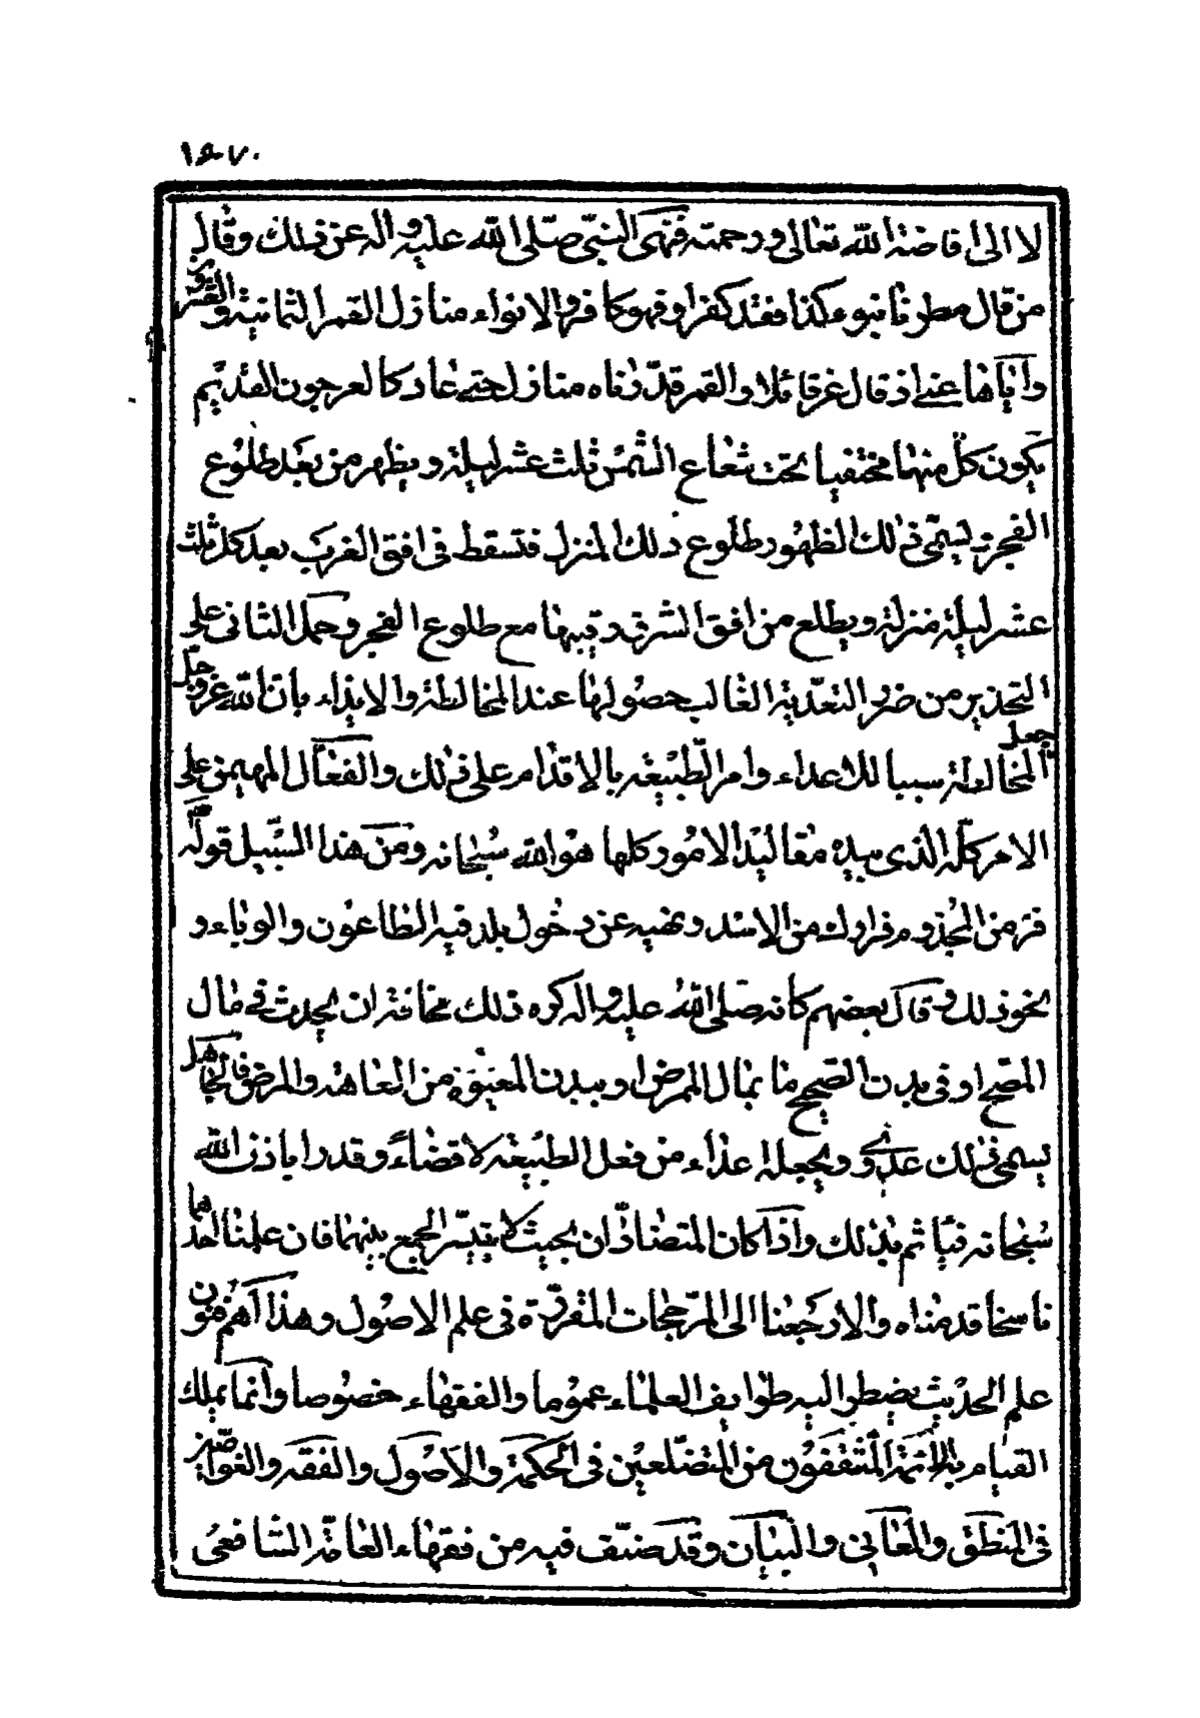 لا الى افاضة الله تعالى ورحمته فنهى النبى صلى الله عليه واله عن ذلك وقال
من قال مطرنا بنوء كذا فقد كفر او فهو كافر والانواء منازل القمر الثمانية والعشرون
واياها عنى اذ قال عز قائلا والقمر قدرناه منازل حتى عاد كالعرجون القديم
يكون كل منها مختفيا تحت شعاع الشمس ثلث عشر ليلة ويظهر من بعد طلوع
الفجر يسمى ذلك الظهور طلوع ذلك المنزل فتسقط فى افق الغرب بعد كل ثلث
عشر ليلة منزلة ويطلع من افق الشرق رقيبها مع طلوع الفجر وحمل الثانى على
التحذير من ضرر التعدية الغالب حصولها عند المخالطة والايذاء بان الله عز وجل
جعل
المخالطة سببا للاعداء وامر الطبيعة بالاقدام على ذلك والفعال المهيمن على
الامر كله الذى بيده مقاليد الامور كلها هو الله سبحانه ومن هذا السبيل قوله
فر من المجذوم فرارك من الاسد ونهيه عن دخول بلد فيه الطاعون والوباء و
نحو ذلك وقال بعضهم كانه صلى الله عليه واله كره ذلك مخافة ان يحدث فى مال
المصح او فى بدن الصحيح ما بمال الممرض او ببدن من العاهة والمرض فالجاهل
يسمى ذلك عدوى ويجعله عداء من فعل الطبيعة لا قضاء وقدرا باذن الله
سبحانه فياثم بذلك واذا كان المتضادان بحيث لا يتيسر الجمع بينهما فان علمنا احدهما
ناسخا قدمناه والا رجعنا الى المرجحات المقررة فى علم الاصول وهذا اهم فنون
علم الحديث يضطر اليه طوايف العلماء عموما والفقهاء خصوصا وانما يملك
القيام به الائمة المتثقفون من المتضلعين فى الحكمة والاصول والفقه والغواصين
فى المنطق والمعانى والبيان وقد صنف فيه من فقهاء العامة الشافعى